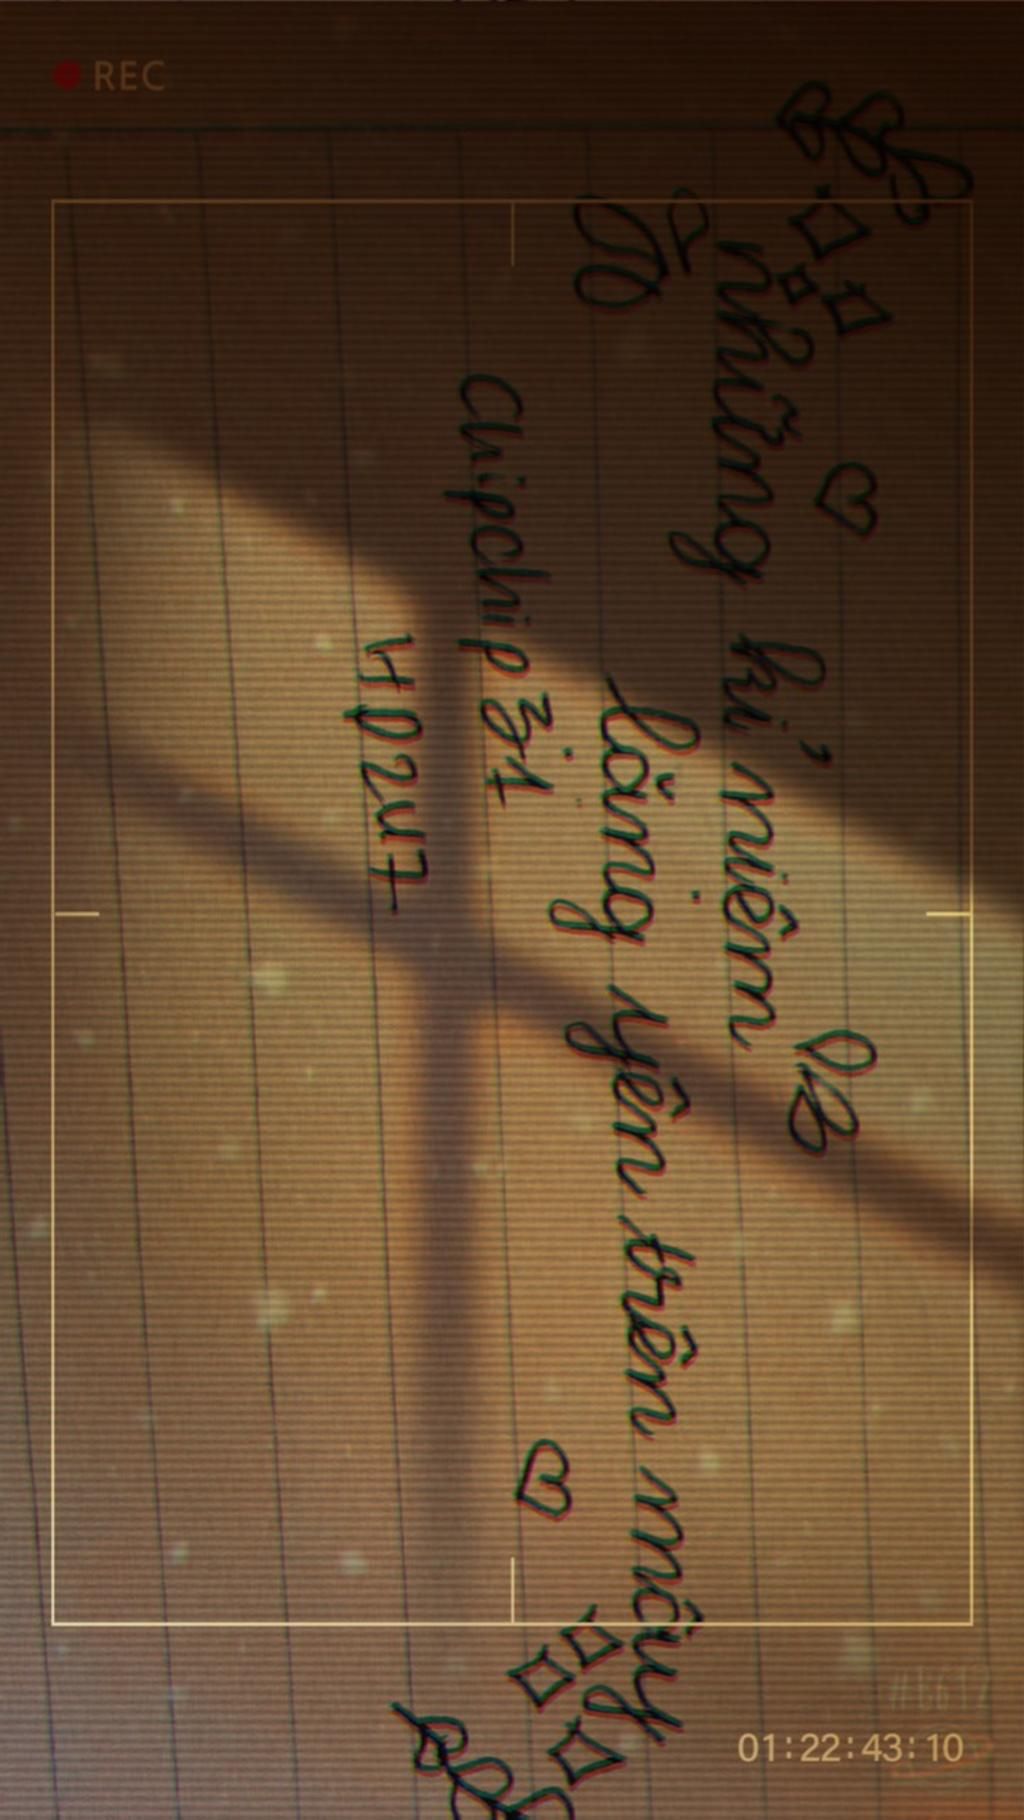 REC
những kỉ niệm
lắng yên trên mây
Chipchip 31
01:22:43:10